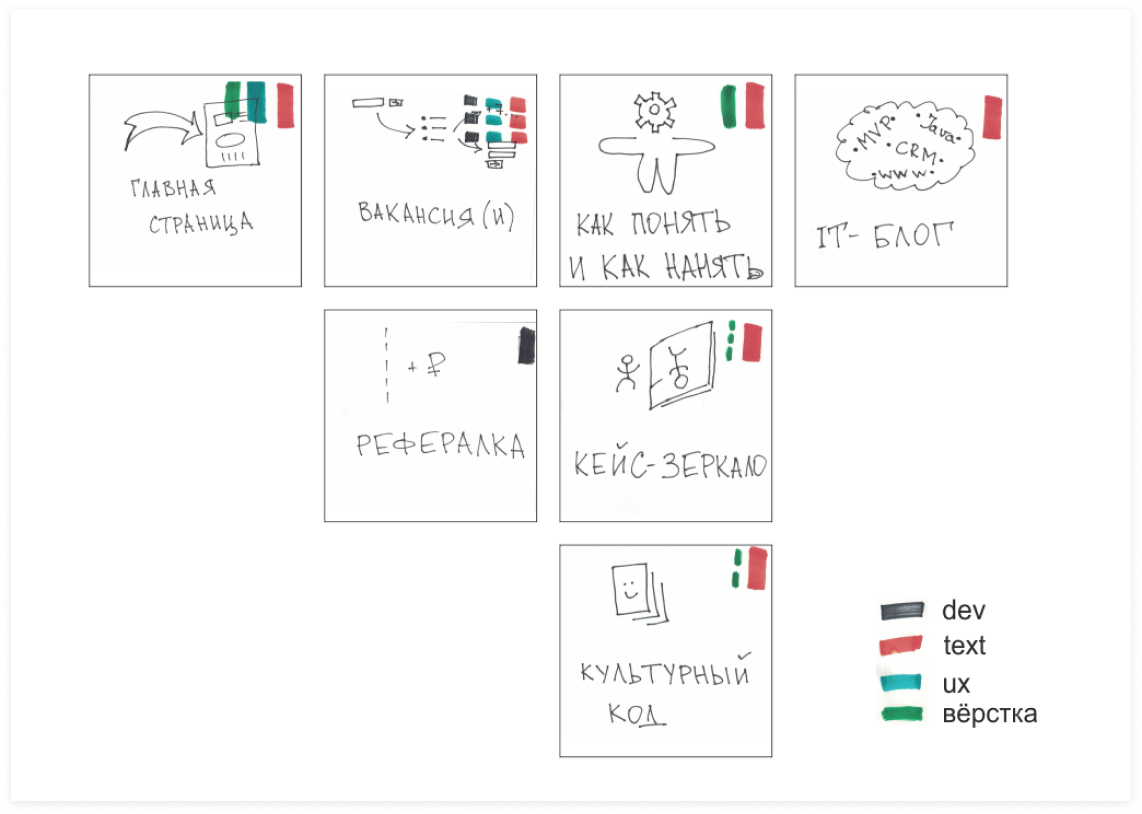 ГЛАВНАЯ
СТРАНИЦА
ВАКАНСИЯ(И)
КАК ПОНЯТЬ
И КАК НАНЯТЬ
MVP
Java
CRM
www
IT-БЛОГ
+ ₽
РЕФЕРАЛКА
КЕЙС-ЗЕРКАЛО
КУЛЬТУРНЫЙ
КОД
dev
text
ux
вёрстка